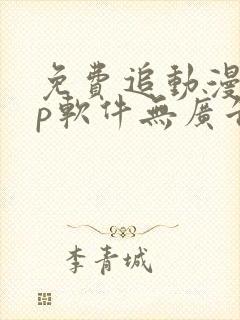 免費追動漫
p軟件無廣
李青城